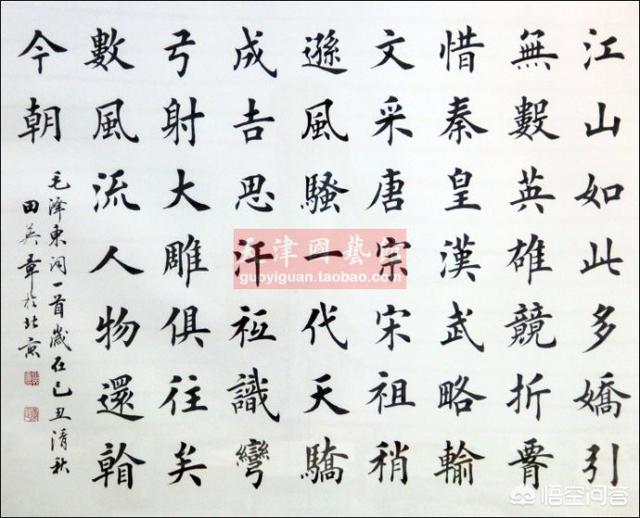 江山如此多嬌引
無數英雄競折
惜秦皇漢武略輸
文采唐宗宋祖稍
遜風騷一代天驕
成吉思汗祗識彎
弓射大雕俱往矣
數風流人物還
今朝
毛澤東詞一首歲在己丑清秋
田英章於北京
天津國藝館
guoyiguan.taobao.com
悟空问答